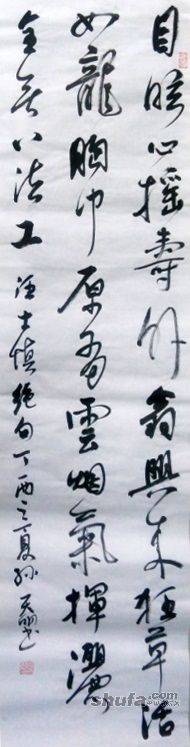 目心摇壽外翁興来狂草活
如龍胸中原有雲烟氣揮灑
全无八法工 汪士慎絕句丁酉之夏孙天
shufa.com